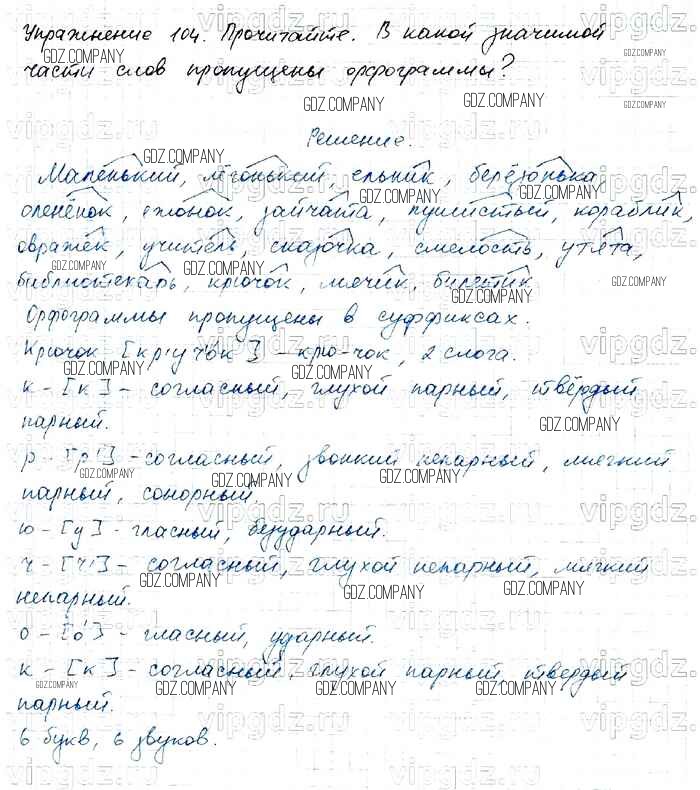 Упражнение 104. Прочитайте. В какой значимой
части слов пропущены орфограммы?
Решение.
Маленький, лёгонький, ельник, берёзонька
оленёнок, ежонок, зайчата, пушистый, кораблик,
овражек, учитель, сказочка, смелость, утята,
библиотекарь, крючок, мячик, билетик
Орфограммы пропущены в суффиксах.
Крючок [кр'уч'о́к] – крю-чок, 2 слога.
к – [к] – согласный, глухой парный, твёрдый
парный.
р – [р'] – согласный, звонкий непарный, мягкий
парный, сонорный.
ю – [у] – гласный, безударный.
ч – [ч'] – согласный, глухой непарный, мягкий
непарный.
о – [о́] – гласный, ударный.
к – [к] – согласный, глухой парный, твердый
парный.
6 букв, 6 звуков.